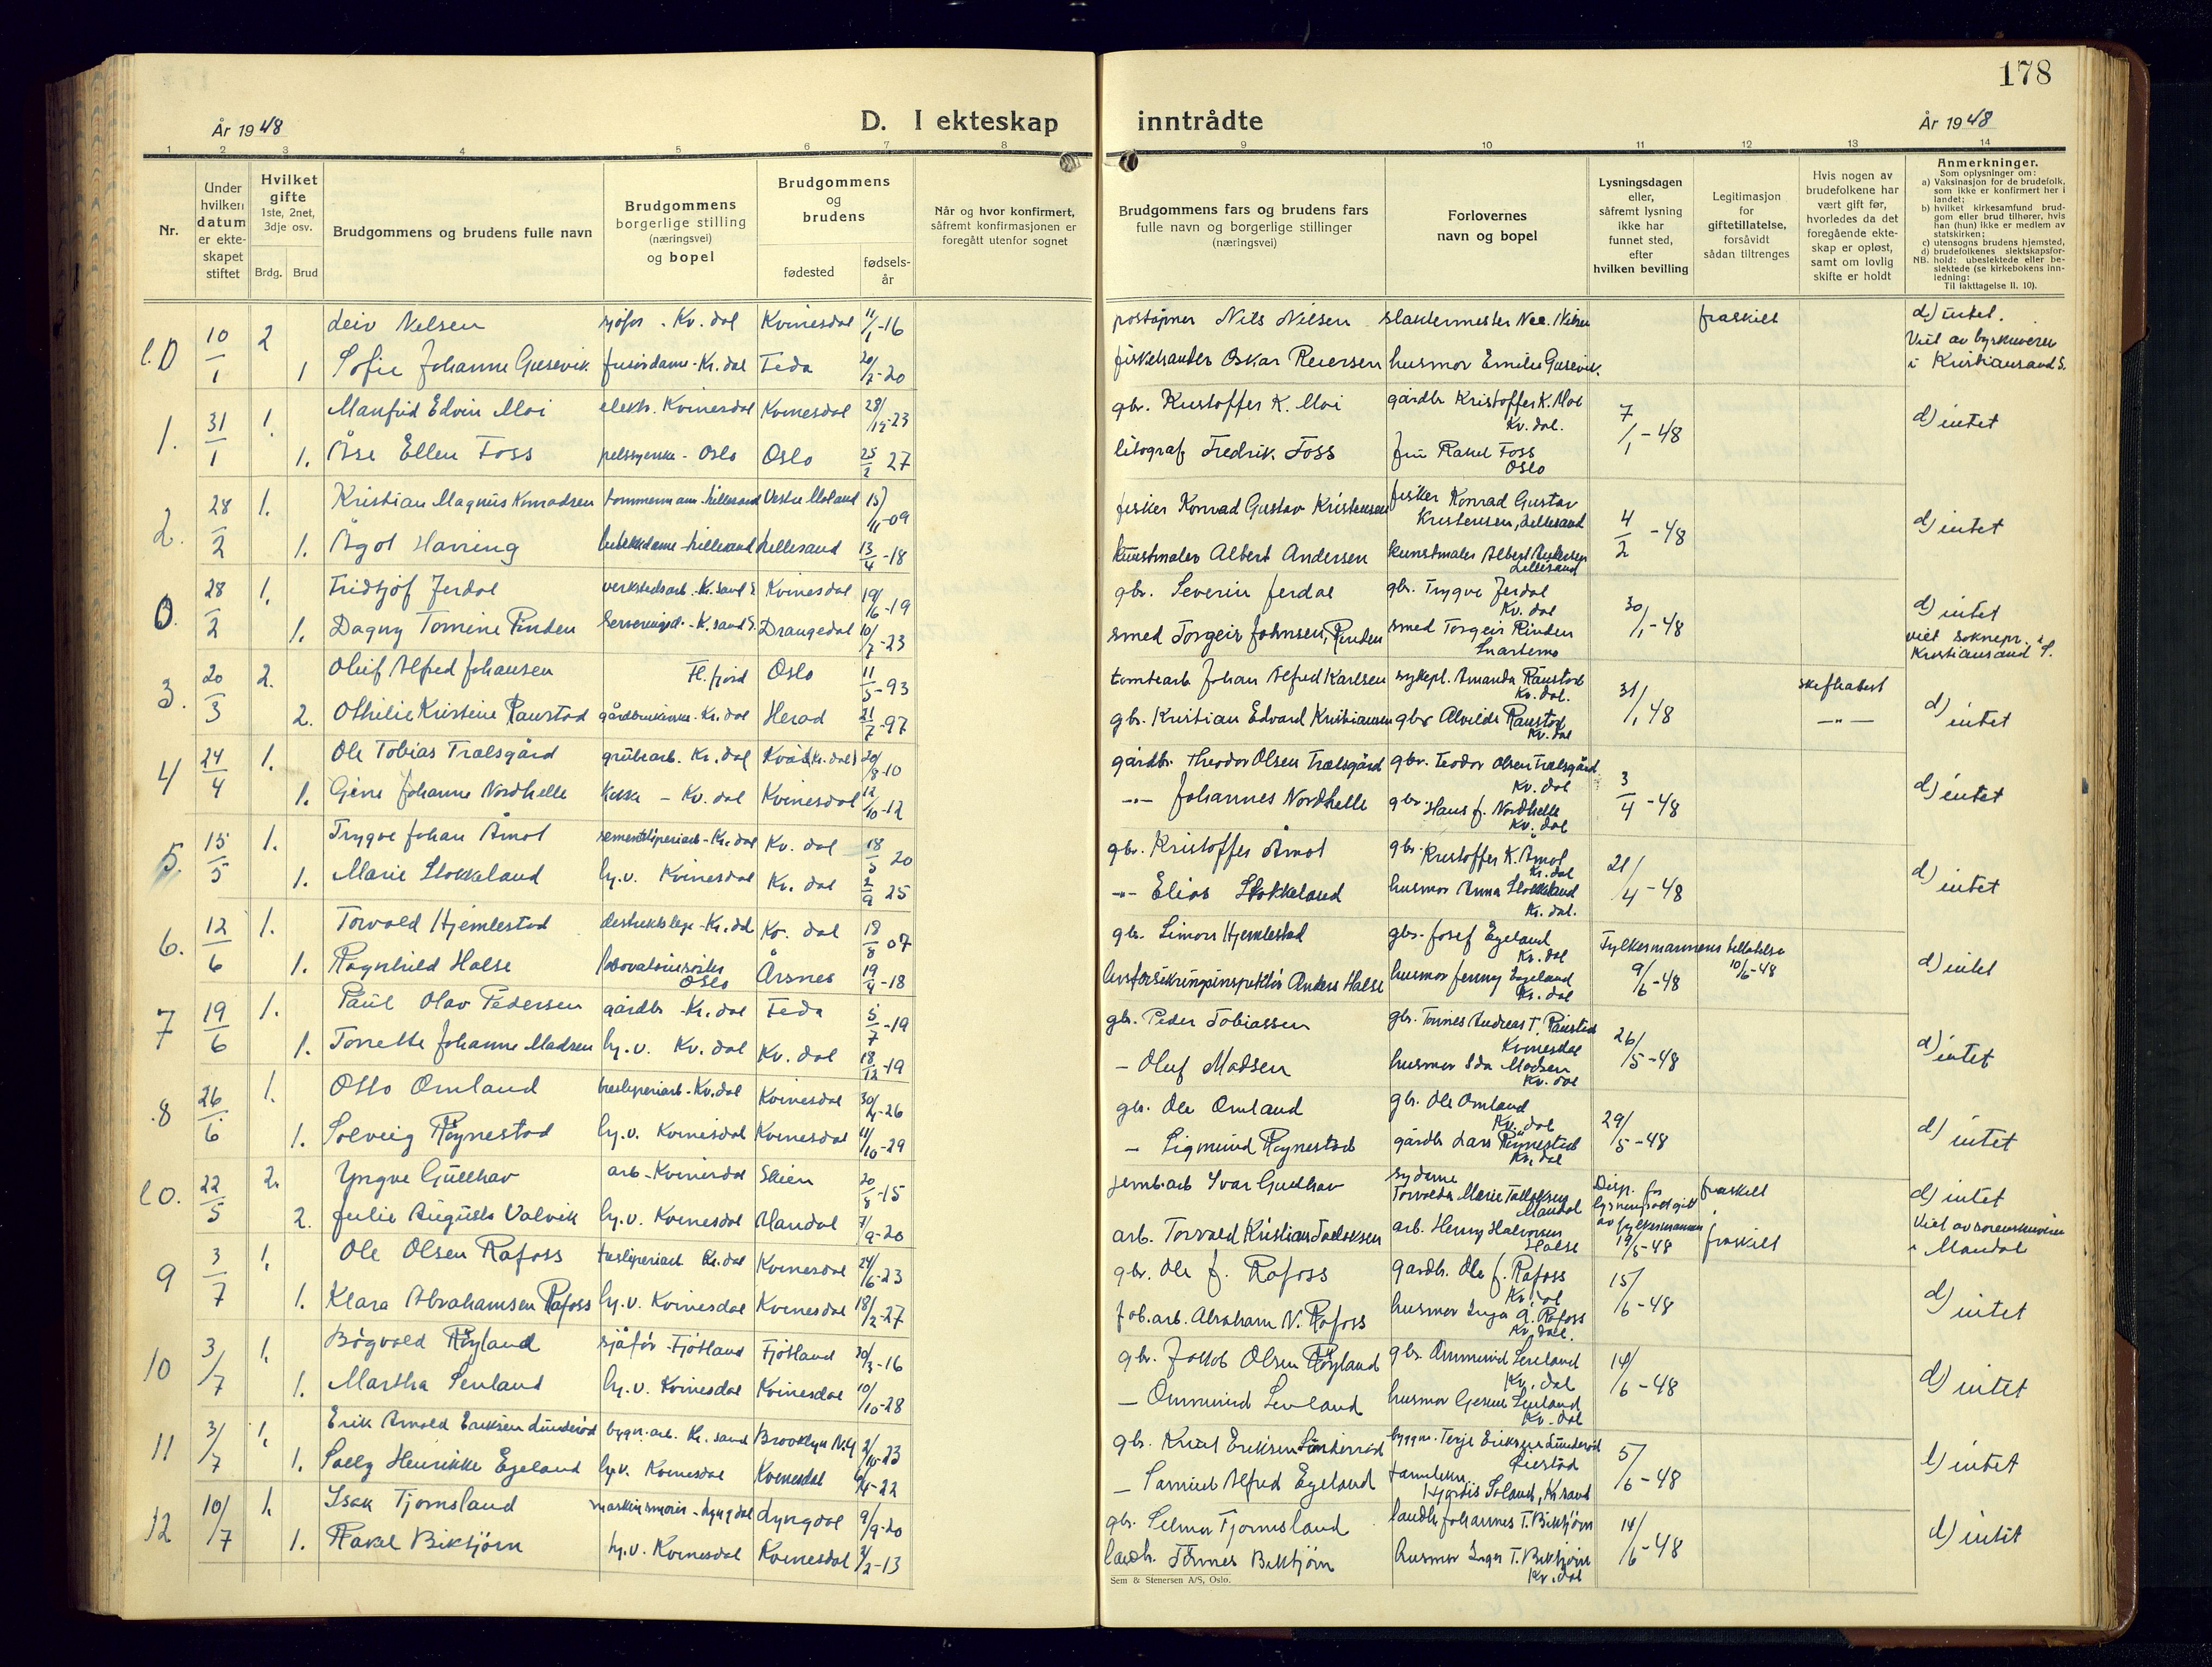 178
År 1948
D. I ekteskap inntrådte
År 1948
1 2 3 4 5 6 7 8 9 10 11 12 13 14
Nr.
Under hvilken datum er ekteskapet stiftet
Hvilket gifte 1ste, 2net, 3dje osv.
Brdg. Brud
Brudgommens og brudens fulle navn
Brudgommens borgerlige stilling (næringsvei) og bopel
Brudgommens og brudens
fødested
fødselsår
Når og hvor konfirmert, såfremt konfirmasjonen er foregått utenfor sognet
Brudgommens fars og brudens fars fulle navn og borgerlige stillinger (næringsvei)
Forlovernes navn og bopel
Lysningsdagen eller, såfremt lysning ikke har funnet sted, efter hvilken bevilling
Legitimasjon for giftetillatelse, forsåvidt sådan tiltrenges
Hvis nogen av brudefolkene har vært gift før, hvorledes da det foregående ekteskap er opløst, samt om lovlig skifte er holdt
Anmerkninger.
Som oplysninger om:
a) Vaksinasjon for de brudefolk, som ikke er konfirmert her i landet;
b) hvilket kirkesamfund brudgom eller brud tilhører, hvis han (hun) ikke er medlem av statskirken;
c) utensogns brudens hjemsted,
d) brudefolkenes slektskapsforhold: ubeslektede eller beslektede (se kirkebokens innledning:
NB.
Til iakttagelse II. 10).
10/1 2 Leiv Nelsen Kv. dal Kvinesdal 11/1-16 Nils Nilsen slaktermester fraskilt d) intet.
1 Sofie Johanne Gusevik Kv. dal Feda 20/7-20 fiskehandler Oskar Reiersen husmor Emilie Gusevik. i Kristiansand S.
1. 31/1 1. Manfrid Edvin Moi elektr. Kvinesdal Kvinesdal 28/12-23 gbr. Kristoffer K. Moi gårdbr Kristoffer K. Moi Kv. dal. 7/1-48 d) intet
1. Åse Ellen Foss pelssyerske - Oslo Oslo 25/2 27 litograf Fredrik Foss fru Rakel Foss Oslo
2. 28/2 1. Kristian Magnus Konradsen tømmermann - Lillesand Vestre Moland 15/11-09 fisker Konrad Gustav Kristensen fisker Konrad Gustav Kristensen, Lillesand 4/2-48 d) intet
1. Ågot Harring butikkdame - Lillesand Lillesand 13/4-18 kunstmaler Albert Andersen kunstmaler Albert Andersen Lillesand
28/2 1. Fridtjof Jerdal verkstedsarb. - Kr. sand S Kvinesdal 19/6-19 gbr. Severin Jerdal gbr. Trygve Jerdal Kv. dal 30/1-48 d) intet
1. Dagny Tomine Rinden K. sand S. Drangedal 10/7-23 smed Torgeir Johnsen, Rinden smed Torgeir Rinden Snartemo viet soknepr. i Kristiansand S.
3. 20/3 2. Oluf Alfred Johansen Fl. fjord Oslo 11/5-93 tomtearb Johan Alfred Karlsen sykepl. Amanda Raustad Kv. dal. 31/1 48 d) intet
2. Othilie Kristine Raustad Kv. dal Herad 21/7-97 gbr. Kristian Edvard Kristiansen gbr Alvilde Raustad Kv. dal -"-
4 24/4 1. Ole Tobias Trælsgård grubearb. Kv. dal Kvås 20/8-10 gårdbr. Theodor Olsen Trælsgård gbr. Teodor Olsen Trælsgård Kv. dal 3/4-48 d) intet
1. Gine Johanne Nordhelle Kokke - Kv. dal Kvinesdal 12/10-12 -"- Johannes Nordhelle gbr. Hans J. Nordhelle Kv. dal
5. 15/5 1. Trygve Johan Åmot Kv. dal Kv. dal 18/5 20 gbr. Kristoffer Åmot gbr. Kristoffer K. Åmot Kv. dal 21/4-48 d) intet
1. Marie Stokkeland hj.v. Kvinesdal Kv. dal 2/9 25 -"- Elias Stokkeland husmor Anna Stokkeland Kv. dal.
6. 12/6 1. Torvald Hjemlestad distriktslege - Kv. dal Kv. dal 18/8 07 gbr. Simon Hjemlestad gbr. Josef Egeland Kv. dal Fylkesmannens tillatelse 9/6-48 10/6-48 d) intet
1. Ragnhild Halse Oslo Årsnes 19/4-18 Anders Halse husmor Jenny Egeland Kv. dal
7 19/6 1. Paul Olav Pedersen gårdbr - Kv. dal Feda 5/7-19 gbr. Peder Tobiassen gbr. Tønnes Andreas T. Raustad Kvinesdal 26/5-48 d) intet
1. Torette Johanne Madsen hj.v. Kv. dal Kv. dal 18/12-19 - Oluf Madsen husmor Ida Madsen Kv. dal
8 26/6 1. Otto Omland Kv. dal Kvinesdal 30/4-26 gbr. Ole Omland gbr. Ole Omland Kv. dal 29/5-48 d) intet
1. Solveig Røynestad hj.v. Kvinesdal Kvinesdal 11/10-29 - Sigmund Røynestad gårdbr Lars Røynestad Kv. dal
22/5 2. Yngve Gullhav arb - Kvinesdal Skien 20/8-15 jernb.arb Ivar Gullhav sydame Torvalda Marie Tallaksen Mandal Disp. for lysning av fylkesmannen 19/5-48 fraskilt d) intet
2. Julie Augusta Valvik hj.v. Kvinesdal Mandal 7/9-20 arb. Torvald Kristian Tallaksen arb. Henry Halvorsen Halse fraskilt Viet av sorenskriveren i Mandal
9 3/7 1. Ole Olsen Rafoss Kv. dal Kvinesdal 24/6-23 gbr. Ole J. Rafoss gårdbr. Ole J. Rafoss Kv. dal 15/6-48 d) intet
1. Klara Abrahamsen Rafoss hj.v. Kvinesdal Kvinesdal 18/2-27 fab.arb. Abraham N. Rafoss husmor Inga A. Rafoss Kv. dal.
10 3/7 1. Bågvald Røyland sjåfør - Fjotland Fjotland 30/3-16 gbr. Jakob Olsen Røyland gbr. Ommund Senland Kv. dal 14/6-48 d) intet
1. Martha Senland hj.v. Kvinesdal Kvinesdal 10/10-28 - Ommund Senland husmor Kv. dal
11 3/7 1. Erik Arnold Eriksen Lunderød bygn.arb. Kr. sand Brooklyn N.Y gbr. Knut Eriksen Lunderød Terje Eriksen Lunderød Øiestad 5/6-48 d) intet
1. Solly Henrikke Egeland hj.v. Kvinesdal Kvinesdal - Samuel Alfred Egeland Hjørdis Soland, Kr. sand
12 10/7 1. Isak Tjomsland Lyngdal Lyngdal 9/9-20 gbr. Selmer Tjomsland landh. Johannes T. Birkjørn 14/6-48 d) intet
1. Rakel Biktjørn hj.v. Kvinesdal Kvinesdal 2/2-13 landh. Tønnes Bektjørn husmor Inger T. Kv. dal
Sem & Stenersen A/S, Oslo.